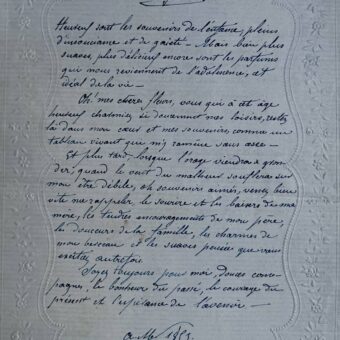 Heureux sont les souvenirs de l'enfance, pleins
d'insouciance et de gaieté — Mais bien plus
suaves, plus délicieux encore sont les parfums
qui nous reviennent de l'adolescence, cet
idéal de la vie —
Oh! mes chères fleurs, vous qui à cet âge
heureux charmiez si doucement mes loisirs, restez
là dans mon cœur et mes souvenirs comme un
tableau vivant que m'y ramène sans cesse —
Et plus tard, lorsque l'orage viendra à gron-
der, quand le vent du malheur soufflera sur
mon être débile, oh souvenirs aimés, venez bien
vite me rappeler le sourire et les baisers de ma
mère, les tendres encouragements de mon père,
la douceur de la famille, les charmes de
mon berceau et les suaves pensées que vous
excitiez autrefois
Soyez toujours pour moi, douces compa-
gnes, le bonheur du passé, le courage du
présent et l'espérance de l'avenir —